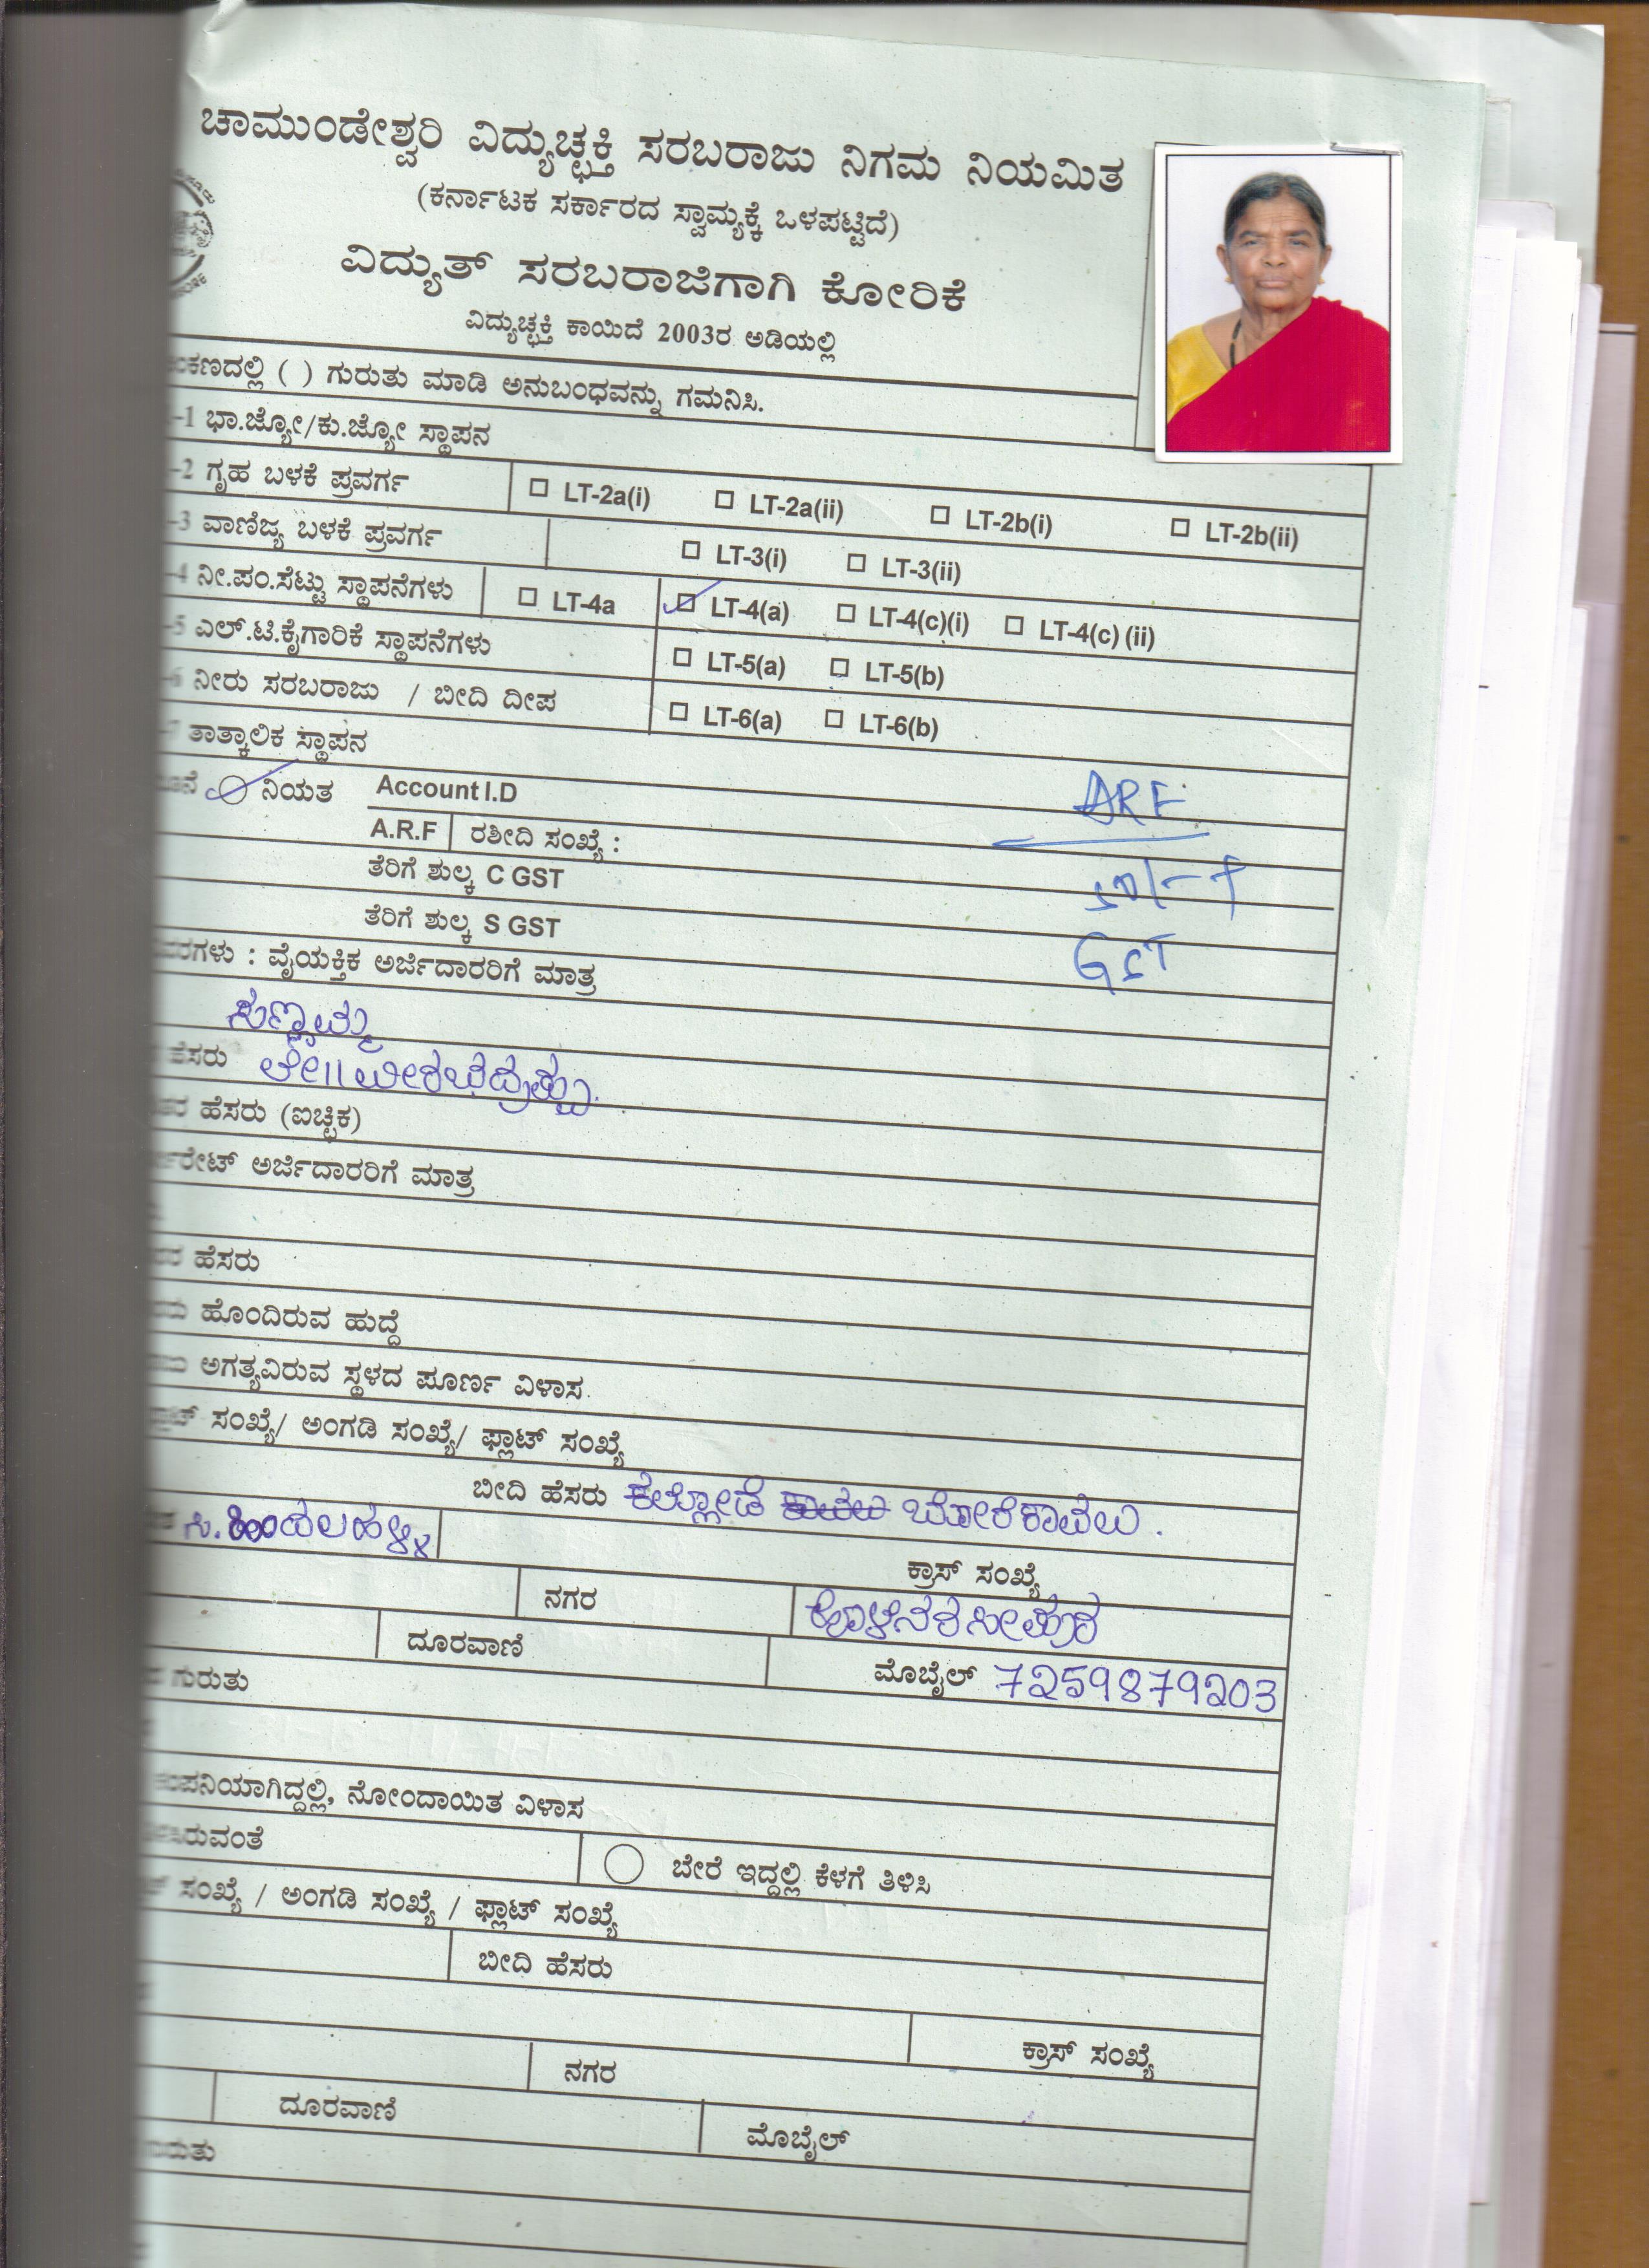 ಚಾಮುಂಡೇಶ್ವರಿ ವಿದ್ಯುಚ್ಛಕ್ತಿ ಸರಬರಾಜು ನಿಗಮ ನಿಯಮಿತ
(ಕರ್ನಾಟಕ ಸರ್ಕಾರದ ಸ್ವಾಮ್ಯಕ್ಕೆ ಒಳಪಟ್ಟಿದೆ)
ವಿದ್ಯುತ್ ಸರಬರಾಜಿಗಾಗಿ ಕೋರಿಕೆ
ವಿದ್ಯುಚ್ಛಕ್ತಿ ಕಾಯಿದೆ 2003ರ ಅಡಿಯಲ್ಲಿ
ಕಣದಲ್ಲಿ ( ) ಗುರುತು ಮಾಡಿ ಅನುಬಂಧವನ್ನು ಗಮನಿಸಿ.
-1 ಭಾ.ಜ್ಯೋ/ಕು.ಜ್ಯೋ ಸ್ಥಾಪನ
-2 ಗೃಹ ಬಳಕೆ ಪ್ರವರ್ಗ LT-2a(i) LT-2a(ii) LT-2b(i) LT-2b(ii)
-3 ವಾಣಿಜ್ಯ ಬಳಕೆ ಪ್ರವರ್ಗ LT-3(i) LT-3(ii)
-4 ನೀ.ಪಂ.ಸೆಟ್ಟು ಸ್ಥಾಪನೆಗಳು LT-4a LT-4(a) LT-4(c)(i) LT-4(c) (ii)
-5 ಎಲ್.ಟಿ.ಕೈಗಾರಿಕೆ ಸ್ಥಾಪನೆಗಳು LT-5(a) LT-5(b)
-6 ನೀರು ಸರಬರಾಜು / ಬೀದಿ ದೀಪ LT-6(a) LT-6(b)
-7 ತಾತ್ಕಾಲಿಕ ಸ್ಥಾಪನ
ನಿಯತ Account I.D ARF
A.R.F ರಶೀದಿ ಸಂಖ್ಯೆ :
ತೆರಿಗೆ ಶುಲ್ಕ C GST
ತೆರಿಗೆ ಶುಲ್ಕ S GST GST
ವೈಯಕ್ತಿಕ ಅರ್ಜಿದಾರರಿಗೆ ಮಾತ್ರ
ಸಣ್ಣಮ್ಮ
ಹೆಸರು ಲೇ॥ ವೀರಭದ್ರಪ್ಪ
ಹೆಸರು (ಐಚ್ಛಿಕ)
ಅರ್ಜಿದಾರರಿಗೆ ಮಾತ್ರ
ಹೆಸರು
ಹೊಂದಿರುವ ಹುದ್ದೆ
ಅಗತ್ಯವಿರುವ ಸ್ಥಳದ ಪೂರ್ಣ ವಿಳಾಸ
ಸಂಖ್ಯೆ/ ಅಂಗಡಿ ಸಂಖ್ಯೆ/ ಫ್ಲಾಟ್ ಸಂಖ್ಯೆ
ಬೀದಿ ಹೆಸರು ಬೋರೆಕಾವಲು.
ಸಿ.ಹಿಂದಲಹಳ್ಳಿ
ಕ್ರಾಸ್ ಸಂಖ್ಯೆ
ನಗರ ಹೊಳೆನರಸೀಪುರ
ದೂರವಾಣಿ ಮೊಬೈಲ್ 7259879203
ಗುರುತು
ಕಂಪನಿಯಾಗಿದ್ದಲ್ಲಿ, ನೋಂದಾಯಿತ ವಿಳಾಸ
ಬೇರೆ ಇದ್ದಲ್ಲಿ ಕೆಳಗೆ ತಿಳಿಸಿ
ಸಂಖ್ಯೆ / ಅಂಗಡಿ ಸಂಖ್ಯೆ / ಫ್ಲಾಟ್ ಸಂಖ್ಯೆ
ಬೀದಿ ಹೆಸರು
ಕ್ರಾಸ್ ಸಂಖ್ಯೆ
ನಗರ
ದೂರವಾಣಿ ಮೊಬೈಲ್